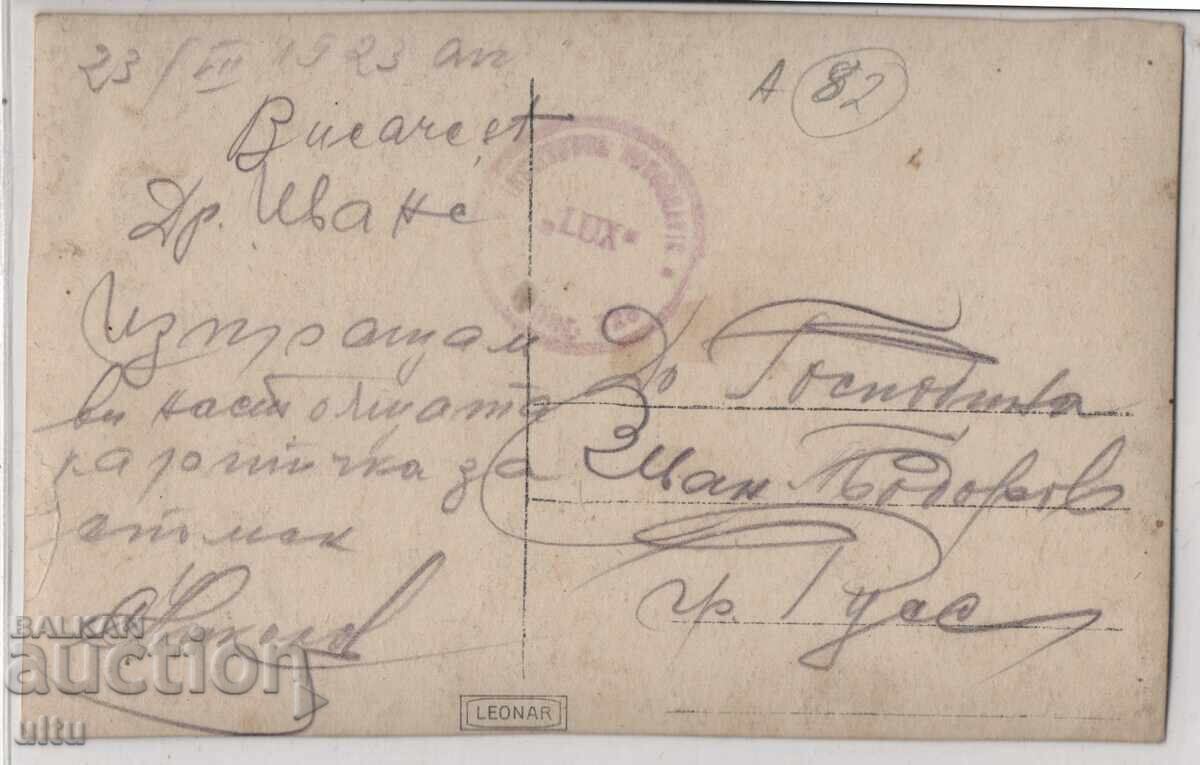 23/VII 1923 ап
Bucarest
Др. Иване
Изпращам
ви настоящата
картичка за
спомен
Николов
A 82
"LUX"
До Господина
Иван Тодоров
гр. Русе
LEONAR
BALKAN
auction
ultu